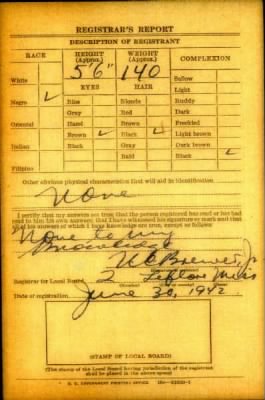 REGISTRAR'S REPORT
DESCRIPTION OF REGISTRANT
RACE
HEIGHT
(Approx.)
WEIGHT
(Approx.)
COMPLEXION
White
5'6"
140
Sallow
EYES
HAIR
Light
Negro
✓
Blue
Blonde
Ruddy
Gray
Red
Dark
Oriental
Hazel
Brown
Freckled
Brown
✓
Black
✓
Light brown
Indian
Black
Gray
Dark brown
Bald
Black
✓
Filipino
Other obvious physical characteristics that will aid in identification
None
I certify that my answers are true; that the person registered has read or has had
read to him his own answers; that I have witnessed his signature or mark and that
all of his answers of which I have knowledge are true, except as follows:
None to my
Knowledge
Registrar for Local Board
2
Leflore
Miss
Date of registration
June 30, 1942
(STAMP OF LOCAL BOARD)
(The stamp of the Local Board having jurisdiction of the registrant
shall be placed in the above space)
U. S. GOVERNMENT PRINTING OFFICE